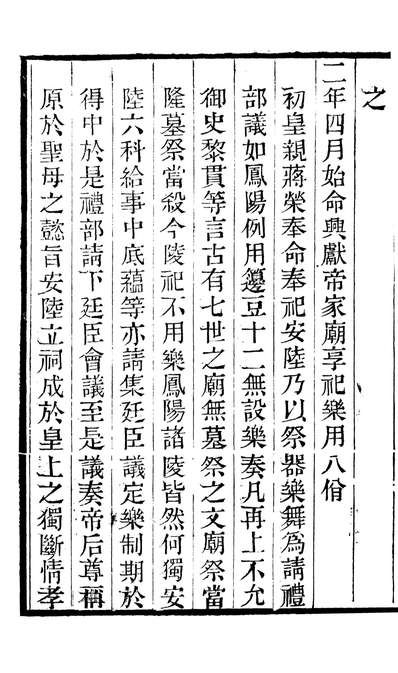 之
二年四月始命興獻帝家廟享祀樂用八佾
初皇親蔣榮奉命奉祀安陸乃以祭器樂舞為請禮
部議如鳳陽例用籩豆十二無設樂奏凡再上不允
御史黎貫等言古有七世之廟無墓祭之文廟祭當
隆墓祭當殺今陵祀不用樂鳳陽諸陵皆然何獨安
陸六科給事中底蘊等亦請集廷臣議定樂制期於
得中於是禮部請下廷臣會議至是議奏帝后尊稱
原於聖母之懿旨安陸立祠成於皇上之獨斷情孝